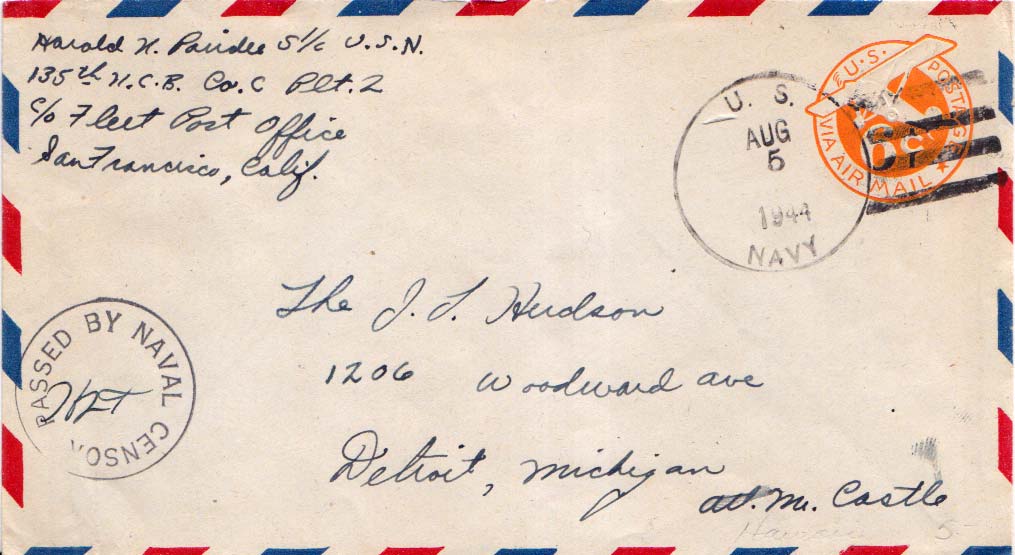 Harold N. Pardee S1/c U.S.N.
135th N.C.B. Co. C Plt. 2
c/o Fleet Post Office
San Francisco, Calif.
U. S.
AUG
5
1944
NAVY
U.S. POSTAGE
6c
VIA AIR MAIL
The J. L. Hudson
1206 Woodward ave
Detroit, Michigan
att. Mr. Castle
PASSED BY NAVAL CENSOR
5